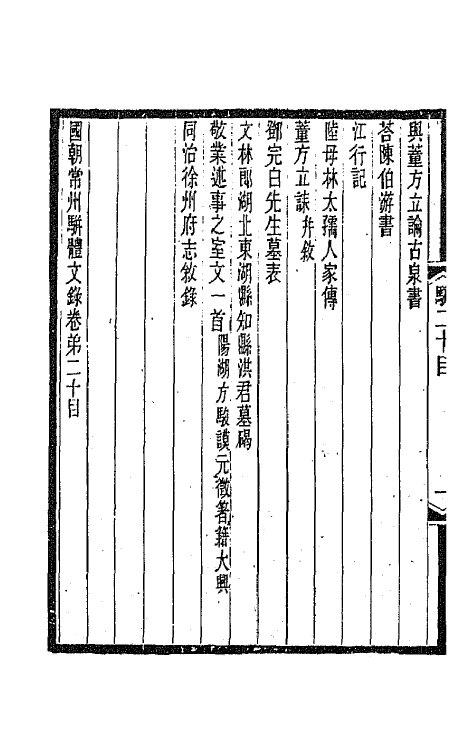 與董方立論古泉書
荅陳伯游書
江行記
陸母林太孺人家傳
董方立誄并敘
鄧完白先生墓表
文林郎湖北東湖縣知縣洪君墓碣
敬業述事之室文一首陽湖方駿謨元徵箸籍大興
同治徐州府志敘錄
國朝常州駢體文錄卷弟二十目
駢二十目
一